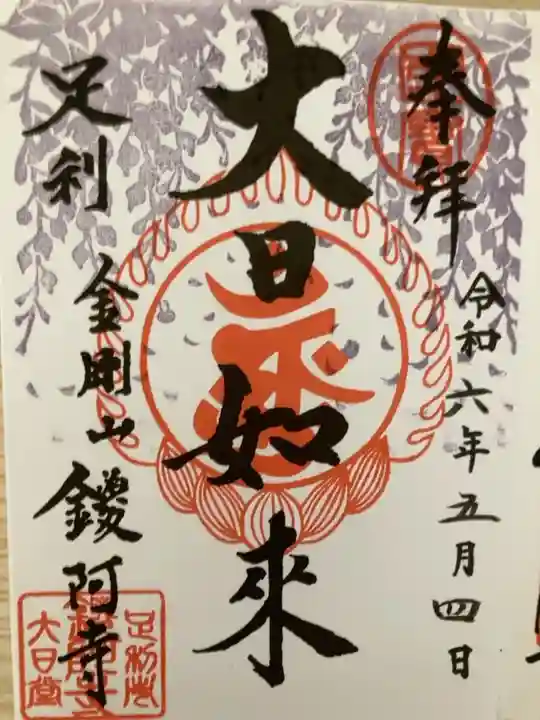 奉拜
令和六年五月四日
大日如來
足利
金剛山 鑁阿寺
足利市
大日堂